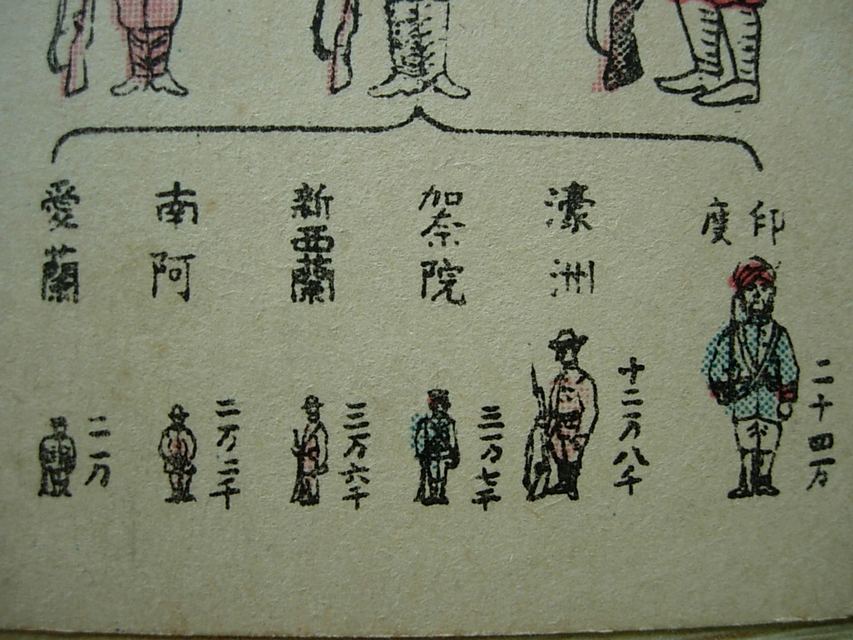 印度
濠洲
加奈陀
新西蘭
南阿
愛蘭
二十四万
十二万八千
三万七千
三万六千
二万二千
二万